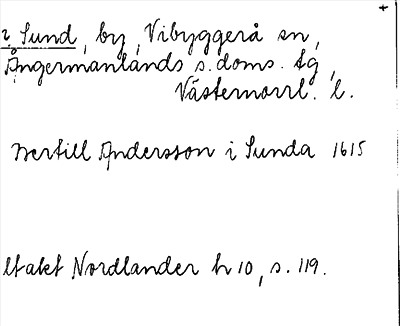 2 Sund, by, Vibyggerå sn,
Ångermanlands s. doms. tg,
Västernorrl. l.
Bertill Andersson i Sunda 1615
Utakt Nordlander h 10, s. 119.